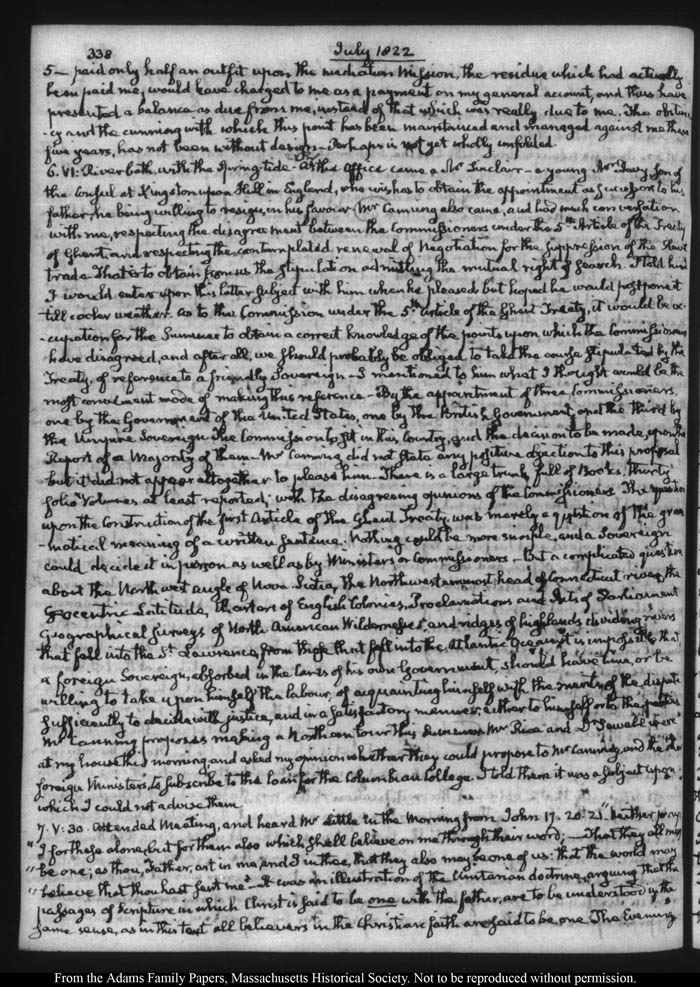 338
July 1822
5— paid only half an outfit upon the mediation Mission, the residue which had actually
been paid me, would have charged to me as a payment on my general account, and thus have
presented a balance as due from me, instead of that which was really due to me. The obstin-
-cy and the cunning with which this point has been maintained and managed against me these
five years, has not been without design— Perhaps is not yet wholly unfolded.
6. VI: River bath, with the Spring-tide— At the Office came a Mr Sinclair— a young Mr Davy, Son of
the Consul at Kingston upon Hull in England, who wishes to obtain the appointment as successor to his
father, he being willing to resign, in his favour. Mr Canning also came, and had much conversation
with me, respecting the disagreement between the Commissioners under the 5th Article of the Treaty
of Ghent, and respecting the contemplated renewal of Negotiation for the suppression of the Slave
trade. That is to obtain from us the stipulation admitting the mutual right of search. I told him
I would enter upon this latter subject with him when he pleased but hoped he would postpone it
till cooler weather. As to the Commission under the 5th article of the Ghent Treaty, it would be oc-
-cupation for the Summer to obtain a correct knowledge of the points upon which the Commissioners
have disagreed, and after all, we should probably be obliged to take the course stipulated by the
Treaty, of reference to a friendly Sovereign— I mentioned to him what I thought would be the
most convenient mode of making this reference— By the appointment of three Commissioners,
one by the Government of the United States, one by the British Government, and the third by
the Umpire Sovereign. The Commission to sit in this Country, and the decision to be made, upon the
Report of a Majority of them— Mr Canning did not state any positive objection to this proposal
but it did not appear altogether to please him— There is a large trunk full of Books, thirty
folio Volumes at least reported, with the disagreeing opinions of the Commissioners. The question
upon the Construction of the first Article of the Ghent Treaty, was merely a question of the gram
-matical meaning of a written sentence. Nothing could be more simple, and a Sovereign
could decide it in person as well as by Ministers or Commissioners— But a complicated question
about the North west angle of Nova-Scotia, the Northwesternmost head of Connecticut river, the
Geocentric Latitude, Charters of English Colonies, Proclamations and Acts of Parliament
Geographical Surveys of North American Wildernesses, and ridges of highlands dividing rivers
that fall into the St. Lawrence, from those that fall into the Atlantic Ocean, it is impossible that
a foreign Sovereign, absorbed in the cares of his own Government, should have time, or be
willing to take upon himself the labour, of acquainting himself with the merits of the dispute
sufficiently to decide with justice, and in a satisfactory manner, either to himself or to the parties
Mr Canning proposes making a Northern tour this Summer. Mr Rice and Dr Sewall were
at my house this morning and asked my opinion whether they could propose to Mr Canning, and the other
foreign Ministers, to subscribe to the loan for the Columbian College. I told them it was a subject upon
which I could not advise them.
7. V: 30. Attended Meeting, and heard Mr Little in the Morning from John 17. 20. 21. "Neither pray
"I for these alone, but for them also which shall believe on me through their word;— That they all may
"be one; as thou, Father, art in me, and I in thee, that they also may be one of us: that the world may
"believe that thou hast sent me"— It was an illustration of the Unitarian doctrine, arguing that the
passages of Scripture in which Christ is said to be one with the father, are to be understood in the
same sense, as in this text all believers in the Christian faith are said to be one. The Evening
From the Adams Family Papers, Massachusetts Historical Society. Not to be reproduced without permission.